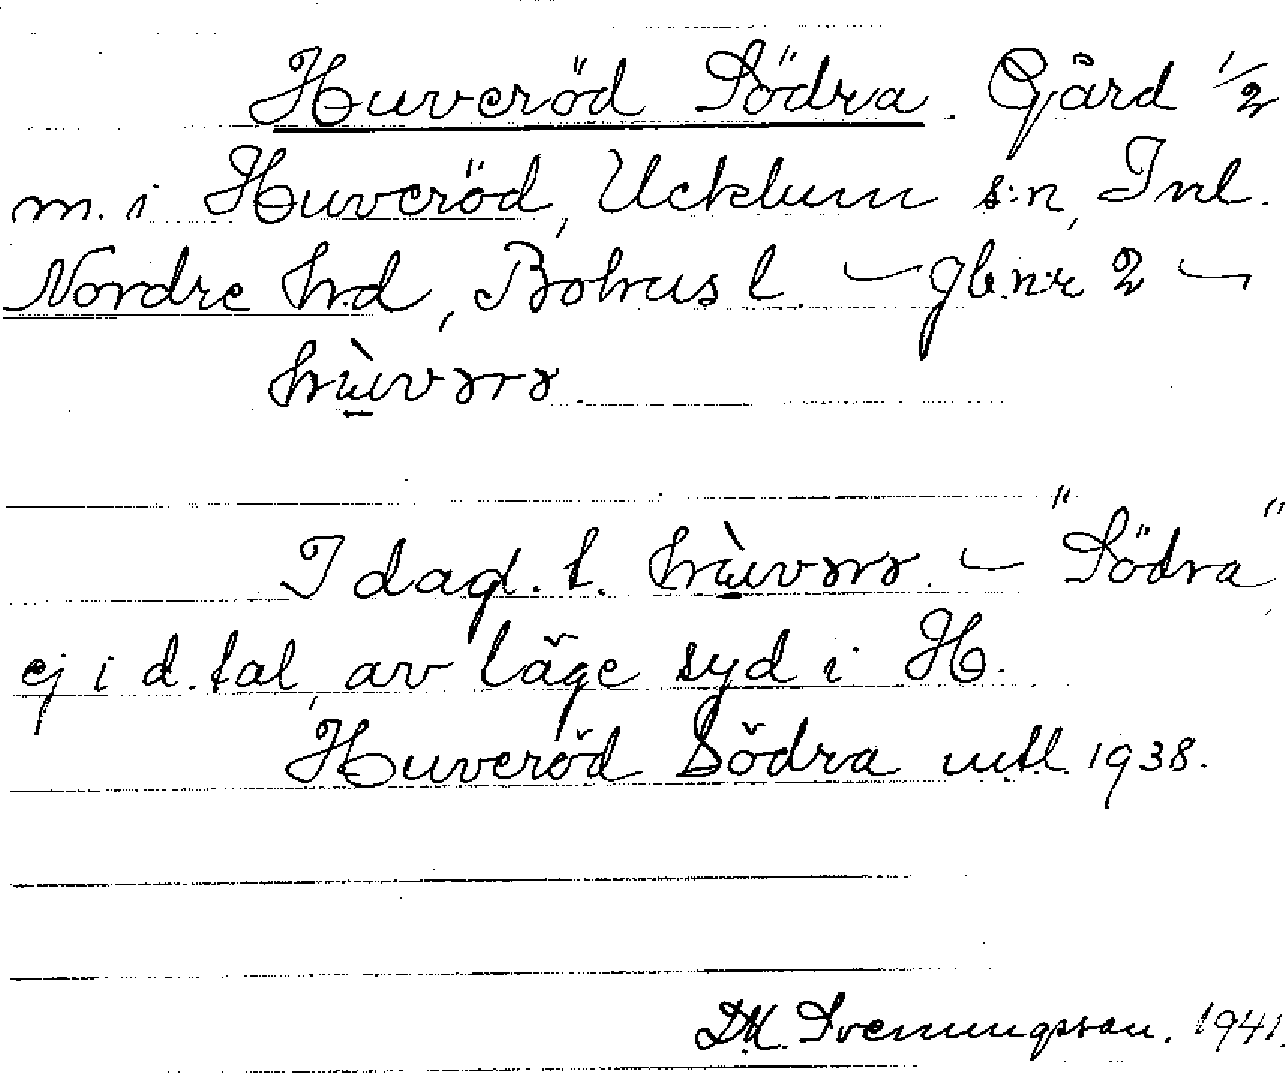 Huveröd Södra. Gård 1/2
m. i Huveröd, Ucklum s:n, Inl.
Nordre hrd, Bohus l. — gb.nr 2 —
I dagl. t. — "Södra"
ej i d. tal, av läge syd i H.
Huveröd Södra mtl 1938.
D.M. Svenungsson. 1941.